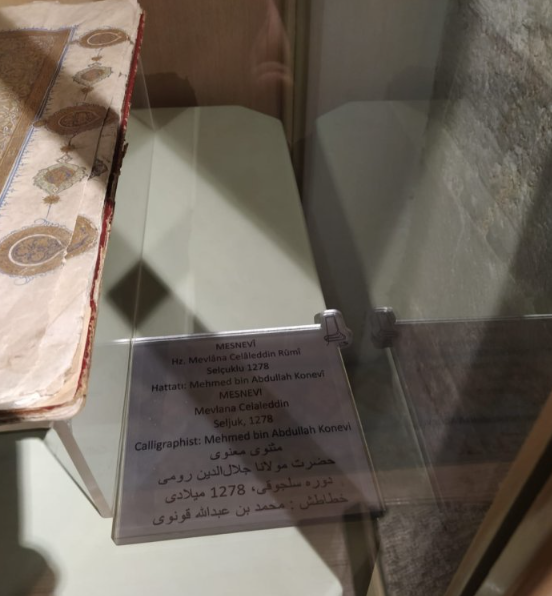 MESNEVİ
Hz. Mevlâna Celâleddin Rûmî
Selçuklu 1278
Hattatı: Mehmed bin Abdullah Konevî
MESNEVI
Mevlana Celaleddin
Seljuk, 1278
Calligraphist: Mehmed bin Abdullah Konevi
مثنوی معنوی
حضرت مولانا جلال‌الدین رومی
دوره سلجوقی، 1278 میلادی
خطاطش : محمد بن عبدالله قونوی